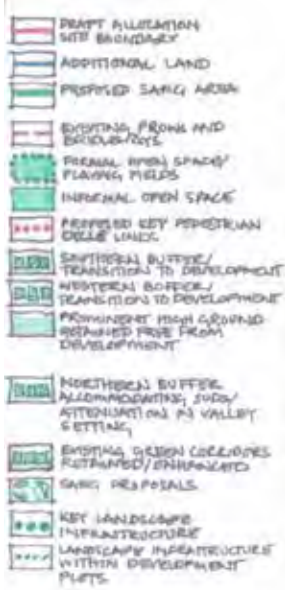 DRAFT ALLOCATION
SITE BOUNDARY
ADDITIONAL LAND
PROPOSED SANG AREA
EXISTING PROWS AND
BRIDLEWAYS
FORMAL OPEN SPACE/
PLAYING FIELDS
INFORMAL OPEN SPACE
PROPOSED KEY PEDESTRIAN
CYCLE LINKS
SOUTHERN BUFFER/
TRANSITION TO DEVELOPMENT
WESTERN BUFFER/
TRANSITION TO DEVELOPMENT
PROMINENT HIGH GROUND
RETAINED FREE FROM
DEVELOPMENT
NORTHERN BUFFER
ACCOMMODATING SUDS/
ATTENUATION IN VALLEY
SETTING
EXISTING GREEN CORRIDORS
RETAINED/ENHANCED
SANG PROPOSALS
KEY LANDSCAPE
INFRASTRUCTURE
LANDSCAPE INFRASTRUCTURE
WITHIN DEVELOPMENT
PLOTS